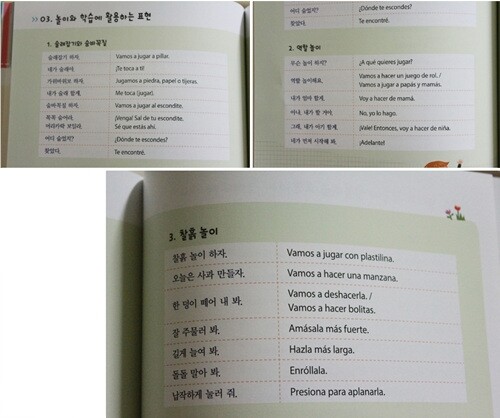 >> 03. 놀이와 학습에 활용하는 표현
1. 술래잡기와 숨바꼭질
술래잡기 하자. Vamos a jugar a pillar.
네가 술래야. ¡Te toca a ti!
가위바위보 하자. Jugamos a piedra, papel o tijeras.
내가 술래 할게. Me toca (jugar).
숨바꼭질 하자. Vamos a jugar al escondite.
꼭꼭 숨어라, ¡Venga! Sal de tu escondite.
머리카락 보일라. Sé que estás ahí.
어디 숨었지? ¿Dónde te escondes?
찾았다. Te encontré.
어디 숨었지? ¿Dónde te escondes?
찾았다. Te encontré.
2. 역할 놀이
무슨 놀이 하지? ¿A qué quieres jugar?
역할 놀이해요. Vamos a hacer un juego de rol. /
Vamos a jugar a papás y mamás.
내가 엄마 할게. Voy a hacer de mamá.
아냐, 내가 할 거야. No, yo lo hago.
그래, 내가 아기 할게. ¡Vale! Entonces, voy a hacer de niña.
네가 먼저 시작해 봐. ¡Adelante!
3. 찰흙 놀이
찰흙 놀이 하자. Vamos a jugar con plastilina.
오늘은 사과 만들자. Vamos a hacer una manzana.
한 덩이 떼어 내 봐. Vamos a deshacerla. /
Vamos a hacer bolitas.
잘 주물러 봐. Amásala más fuerte.
길게 늘여 봐. Hazla más larga.
돌돌 말아 봐. Enróllala.
납작하게 눌러 줘. Presiona para aplanarla.